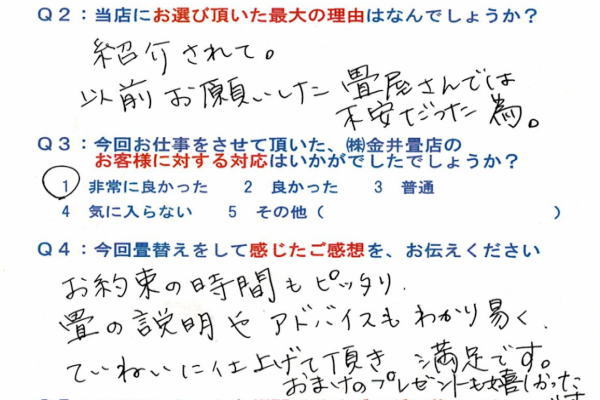 Q2：当店にお選び頂いた最大の理由はなんでしょうか？
紹介されて。
以前お願いした畳屋さんでは
不安だった為。
Q3：今回お仕事をさせて頂いた、㈱金井畳店の
お客様に対する対応はいかがでしたでしょうか？
1 非常に良かった 2 良かった 3 普通
4 気に入らない 5 その他（ ）
Q4：今回畳替えをして感じたご感想を、お伝えください
お約束の時間もピッタリ、
畳の説明やアドバイスもわかり易く、
ていねいに仕上げて頂き 満足です。
おまけのプレゼントも嬉しかった